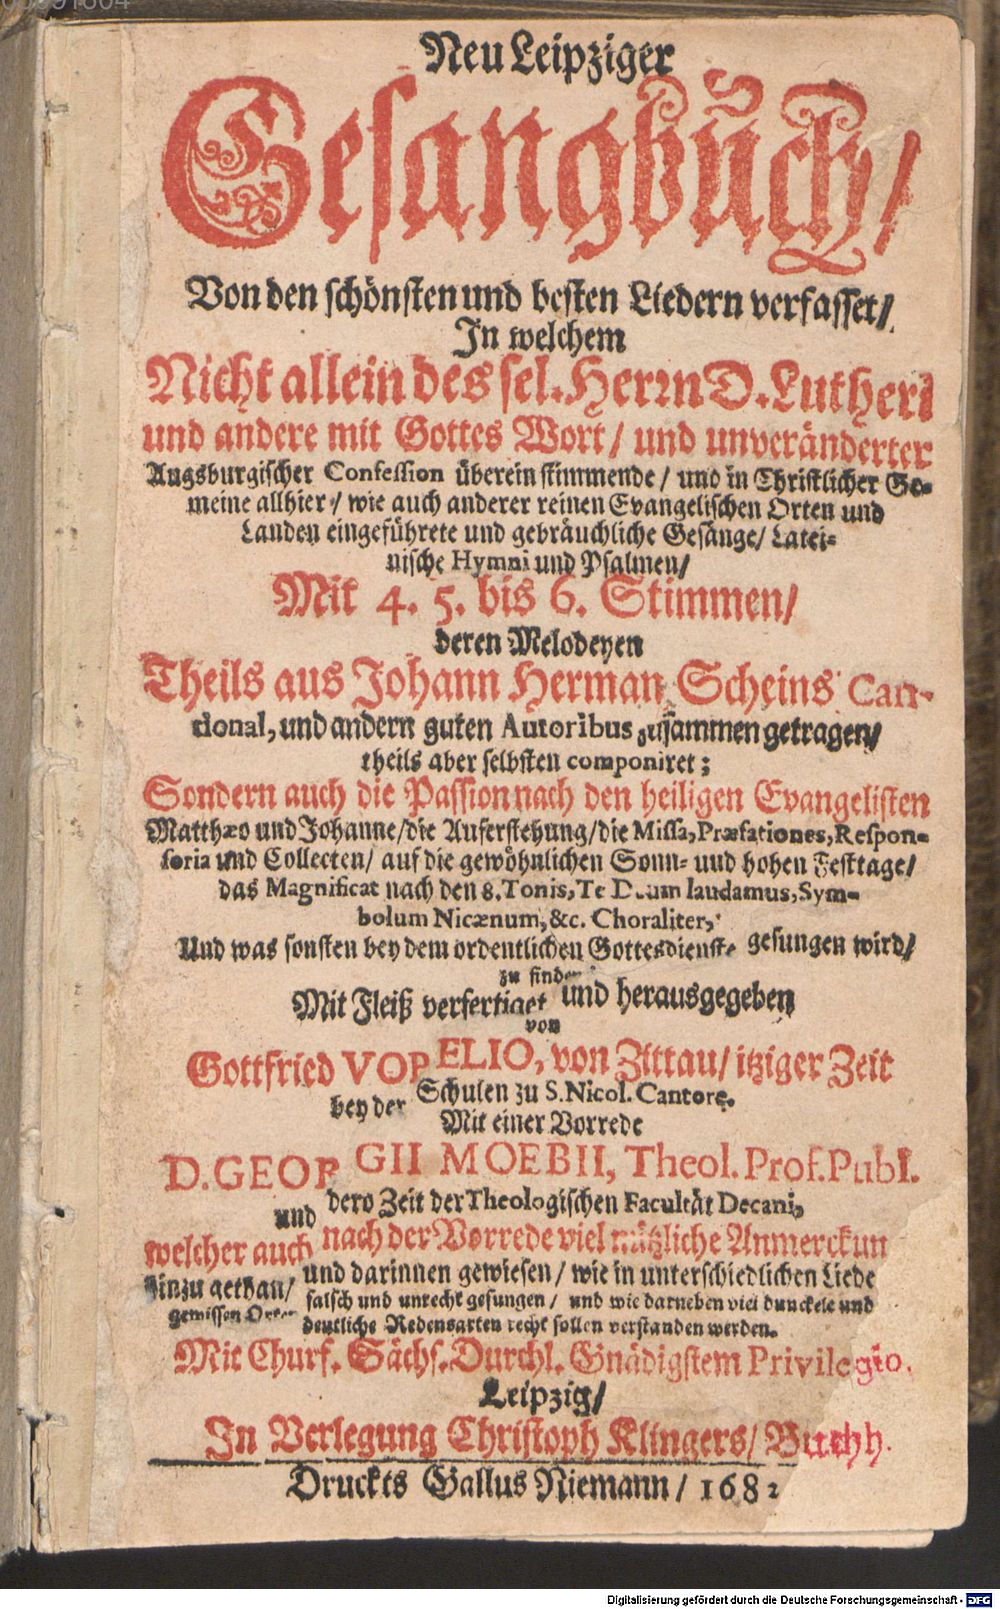 Neu Leipziger
Gesangbuch/
Von den schönsten und besten Liedern verfasset/
In welchem
Nicht allein des sel. Herrn D. Lutheri
und andere mit Gottes Wort/ und unveränderter
Augsburgischer Confession überein stimmende/ und in Christlicher Ge-
meine allhier/ wie auch anderer reinen Evangelischen Orten und
Landen eingeführete und gebräuchliche Gesänge/ Latei-
nische Hymni und Psalmen/
Mit 4. 5. bis 6. Stimmen/
deren Melodeyen
Theils aus Johann Herman Scheins Can-
tional, und andern guten Autoribus zusammen getragen/
theils aber selbsten componiret;
Sondern auch die Passion nach den heiligen Evangelisten
Matthæo und Johanne/ die Auferstehung/ die Missa, Præfationes, Respon-
soria und Collecten/ auf die gewöhnlichen Sonn- und hohen Festtage/
das Magnificat nach den 8. Tonis, Te Deum laudamus, Sym-
bolum Nicænum, &c. Choraliter,
Und was sonsten bey dem ordentlichen Gottesdienste gesungen wird/
zu finden
Mit Fleiß verfertiget und herausgegeben
von
Gottfried VOPELIO, von Zittau/ itziger Zeit
bey der Schulen zu S. Nicol. Cantore.
Mit einer Vorrede
D. GEORGII MOEBII, Theol. Prof. Publ.
und dero Zeit der Theologischen Facultät Decani,
welcher auch nach der Vorrede viel nützliche Anmerckun
hinzu gethan/ und darinnen gewiesen/ wie in unterschiedlichen Liede
gewissen Orten falsch und unrecht gesungen/ und wie darneben viel dunckele und
deutliche Redensarten recht sollen verstanden werden.
Mit Churf. Sächs. Durchl. Gnädigstem Privilegio.
Leipzig/
In Verlegung Christoph Klingers/ Buchh.
Druckts Gallus Niemann/ 1682
Digitalisierung gefördert durch die Deutsche Forschungsgemeinschaft - DFG